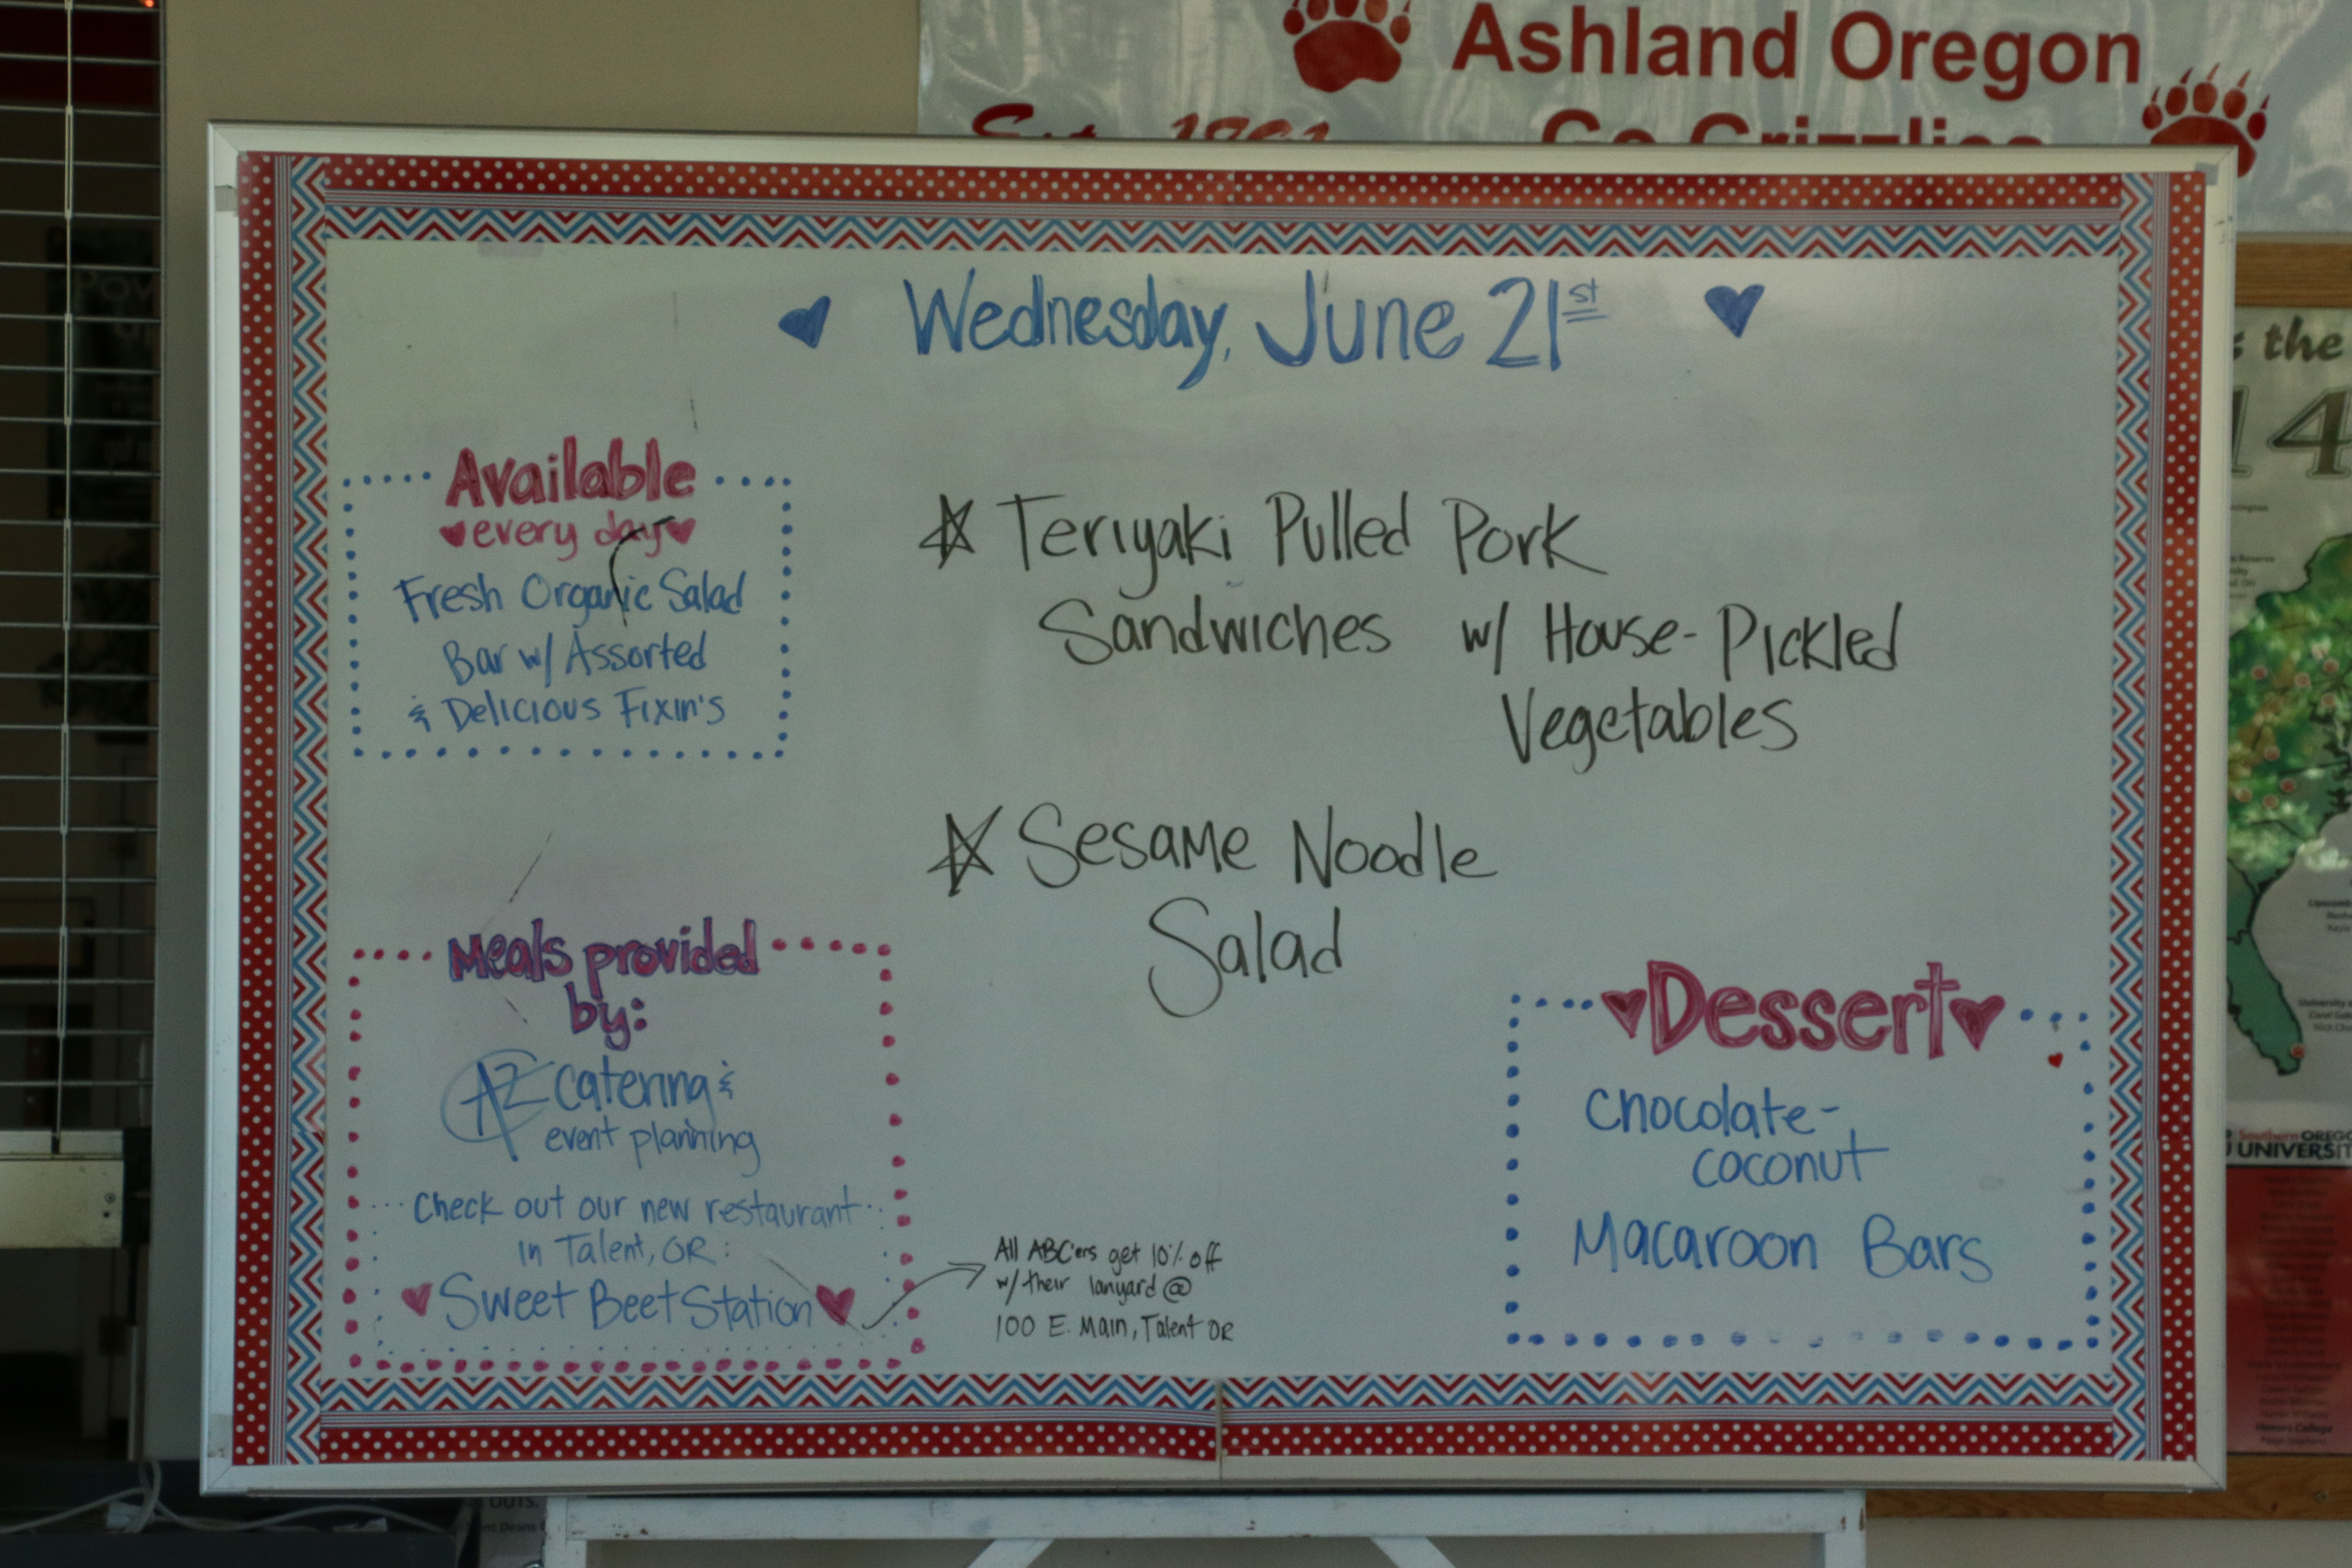 Ashland Oregon
Go Grizzlies
Wednesday, June 21st
Available
every day
Fresh Organic Salad
Bar w/ Assorted
& Delicious Fixin's
Teriyaki Pulled Pork
Sandwiches w/ House-Pickled
Vegetables
Sesame Noodle
Salad
Meals provided
by:
AZ catering &
event planning
Check out our new restaurant
in Talent, OR:
Sweet Beet Station
All ABC'ers get 10% off
w/ their lanyard @
100 E. Main, Talent OR
Dessert
Chocolate-
coconut
Macaroon Bars
the
14
Southern OREGO
UNIVERSIT
Honors College